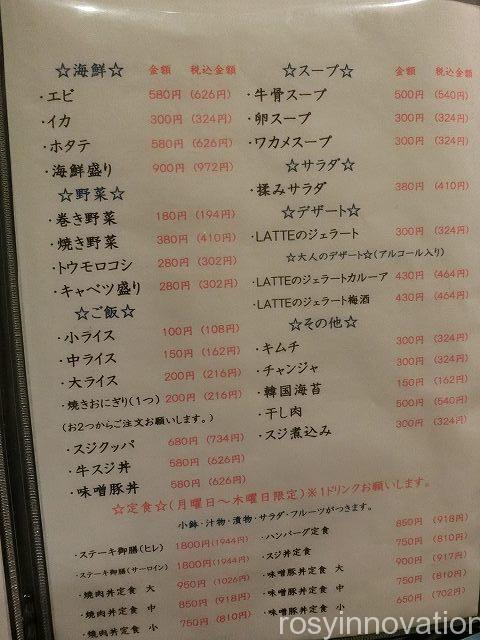 ☆海鮮☆ 金額 税込金額
・エビ 580円 (626円)
・イカ 300円 (324円)
・ホタテ 580円 (626円)
・海鮮盛り 900円 (972円)
☆野菜☆
・巻き野菜 180円 (194円)
・焼き野菜 380円 (410円)
・トウモロコシ 280円 (302円)
・キャベツ盛り 280円 (302円)
☆ご飯☆
・小ライス 100円 (108円)
・中ライス 150円 (162円)
・大ライス 200円 (216円)
・焼きおにぎり(1つ) 200円 (216円)
(お2つからご注文お願いします。)
・スジクッパ 680円 (734円)
・牛スジ丼 580円 (626円)
・味噌豚丼 580円 (626円)
☆スープ☆ 金額 税込金額
・牛骨スープ 500円 (540円)
・卵スープ 300円 (324円)
・ワカメスープ 300円 (324円)
☆サラダ☆
・揉みサラダ 380円 (410円)
☆デザート☆
・LATTEのジェラート 300円 (324円)
☆大人のデザート☆(アルコール入り)
・LATTEのジェラートカルーア 430円 (464円)
・LATTEのジェラート梅酒 430円 (464円)
☆その他☆
・キムチ 300円 (324円)
・チャンジャ 300円 (324円)
・韓国海苔 150円 (162円)
・干し肉 500円 (540円)
・スジ煮込み 300円 (324円)
☆定食☆(月曜日～木曜日限定)※1ドリンクお願いします。
小鉢・汁物・漬物・サラダ・フルーツがつきます。
・ステーキ御膳(ヒレ) 1800円 (1944円)
・ステーキ御膳(サーロイン) 1800円 (1944円)
・焼肉丼定食 大 950円 (1026円)
・焼肉丼定食 中 850円 (918円)
・焼肉丼定食 小 750円 (810円)
・ハンバーグ定食 850円 (918円)
・スジ丼定食 750円 (810円)
・味噌豚丼定食 大 900円 (917円)
・味噌豚丼定食 中 750円 (810円)
・味噌豚丼定食 小 650円 (702円)
rosyinnovation